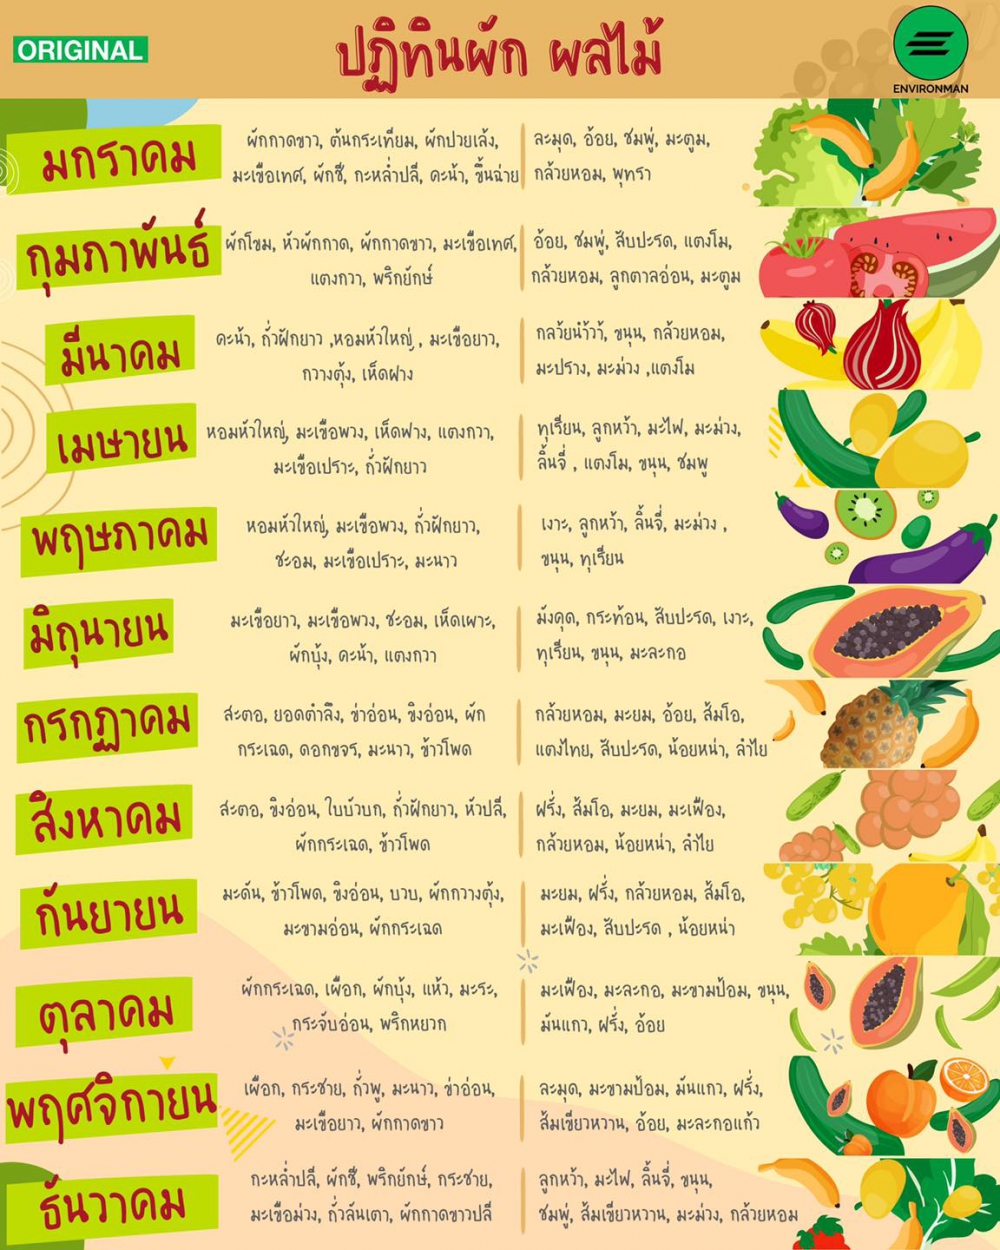 ORIGINAL
ปฏิทินผัก ผลไม้
ENVIRONMAN
มกราคม
ผักกาดขาว, ต้นกระเทียม, ผักปวยเล้ง,
มะเขือเทศ, ผักชี, กะหล่ำปลี, คะน้า, ขึ้นฉ่าย
ละมุด, อ้อย, ชมพู่, มะตูม,
กล้วยหอม, พุทรา
กุมภาพันธ์
ผักโขม, หัวผักกาด, ผักกาดขาว, มะเขือเทศ,
แตงกวา, พริกยักษ์
อ้อย, ชมพู่, สับปะรด, แตงโม,
กล้วยหอม, ลูกตาลอ่อน, มะตูม
มีนาคม
คะน้า, ถั่วฝักยาว ,หอมหัวใหญ่ , มะเขือยาว,
กวางตุ้ง, เห็ดฟาง
กลว้ยน้ำว้า, ขนุน, กล้วยหอม,
มะปราง, มะม่วง ,แตงโม
เมษายน
หอมหัวใหญ่, มะเขือพวง, เห็ดฟาง, แตงกวา,
มะเขือเปราะ, ถั่วฝักยาว
ทุเรียน, ลูกหว้า, มะไฟ, มะม่วง,
ลิ้นจี่ , แตงโม, ขนุน, ชมพู่
พฤษภาคม
หอมหัวใหญ่, มะเขือพวง, ถั่วฝักยาว,
ชะอม, มะเขือเปราะ, มะนาว
เงาะ, ลูกหว้า, ลิ้นจี่, มะม่วง ,
ขนุน, ทุเรียน
มิถุนายน
มะเขือยาว, มะเขือพวง, ชะอม, เห็ดเผาะ,
ผักบุ้ง, คะน้า, แตงกวา
มังคุด, กระท้อน, สับปะรด, เงาะ,
ทุเรียน, ขนุน, มะละกอ
กรกฎาคม
สะตอ, ยอดตำลึง, ข่าอ่อน, ขิงอ่อน, ผัก
กระเฉด, ดอกขจร, มะนาว, ข้าวโพด
กล้วยหอม, มะยม, อ้อย, ส้มโอ,
แตงไทย, สับปะรด, น้อยหน่า, ลำไย
สิงหาคม
สะตอ, ขิงอ่อน, ใบบัวบก, ถั่วฝักยาว, หัวปลี,
ผักกระเฉด, ข้าวโพด
ฝรั่ง, ส้มโอ, มะยม, มะเฟือง,
กล้วยหอม, น้อยหน่า, ลำไย
กันยายน
มะดัน, ข้าวโพด, ขิงอ่อน, บวบ, ผักกวางตุ้ง,
มะขามอ่อน, ผักกระเฉด
มะยม, ฝรั่ง, กล้วยหอม, ส้มโอ,
มะเฟือง, สับปะรด , น้อยหน่า
ตุลาคม
ผักกระเฉด, เผือก, ผักบุ้ง, แห้ว, มะระ,
กระจับอ่อน, พริกหยวก
มะเฟือง, มะละกอ, มะขามป้อม, ขนุน,
มันแกว, ฝรั่ง, อ้อย
พฤศจิกายน
เผือก, กระชาย, ถั่วพู, มะนาว, ข่าอ่อน,
มะเขือยาว, ผักกาดขาว
ละมุด, มะขามป้อม, มันแกว, ฝรั่ง,
ส้มเขียวหวาน, อ้อย, มะละกอแก้ว
ธันวาคม
กะหล่ำปลี, ผักชี, พริกยักษ์, กระชาย,
มะเขือม่วง, ถั่วลันเตา, ผักกาดขาวปลี
ลูกหว้า, มะไฟ, ลิ้นจี่, ขนุน,
ชมพู่, ส้มเขียวหวาน, มะม่วง, กล้วยหอม